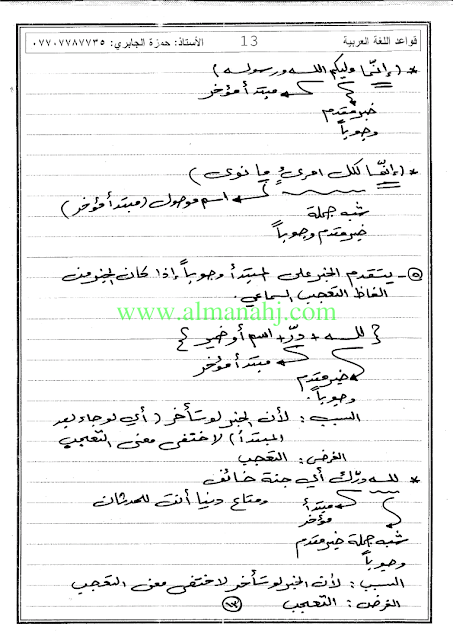 قواعد اللغة العربية 13 الأستاذ: حمزة الجابري: ٠٧٧٠٧٧٨٧٧٣٥
* (إنّما وليكم اللـه ورسوله)
مبتدأ مؤخر
خبر مقدم
وجوباً
* (إنّما لكل امرئٍ ما نوى)
اسم موصول (مبتدأ مؤخر)
شبه جملة
خبر مقدم وجوباً
٥- يتقدم الخبر على المبتدأ وجوباً إذا كان الخبر من
الفاظ التعجب السماعي.
www.almanahj.com
{ للـه + درّ + اسم أو ضمير }
مبتدأ مؤخر
خبر مقدم
وجوباً.
السبب : لأن الخبر لو تأخر ( أي لو جاء بعد
المبتدأ ) لاختفى معنى التعجب
الغرض : التعجب
* للـه درّك أي جنة خائف
ومتاع دنيا أنت للحدثان
مبتدأ
مؤخر
شبه جملة خبر مقدم
وجوباً
السبب : لأن الخبر لو تأخر لاختفى معنى التعجب
الغرض : التعجب
١٣